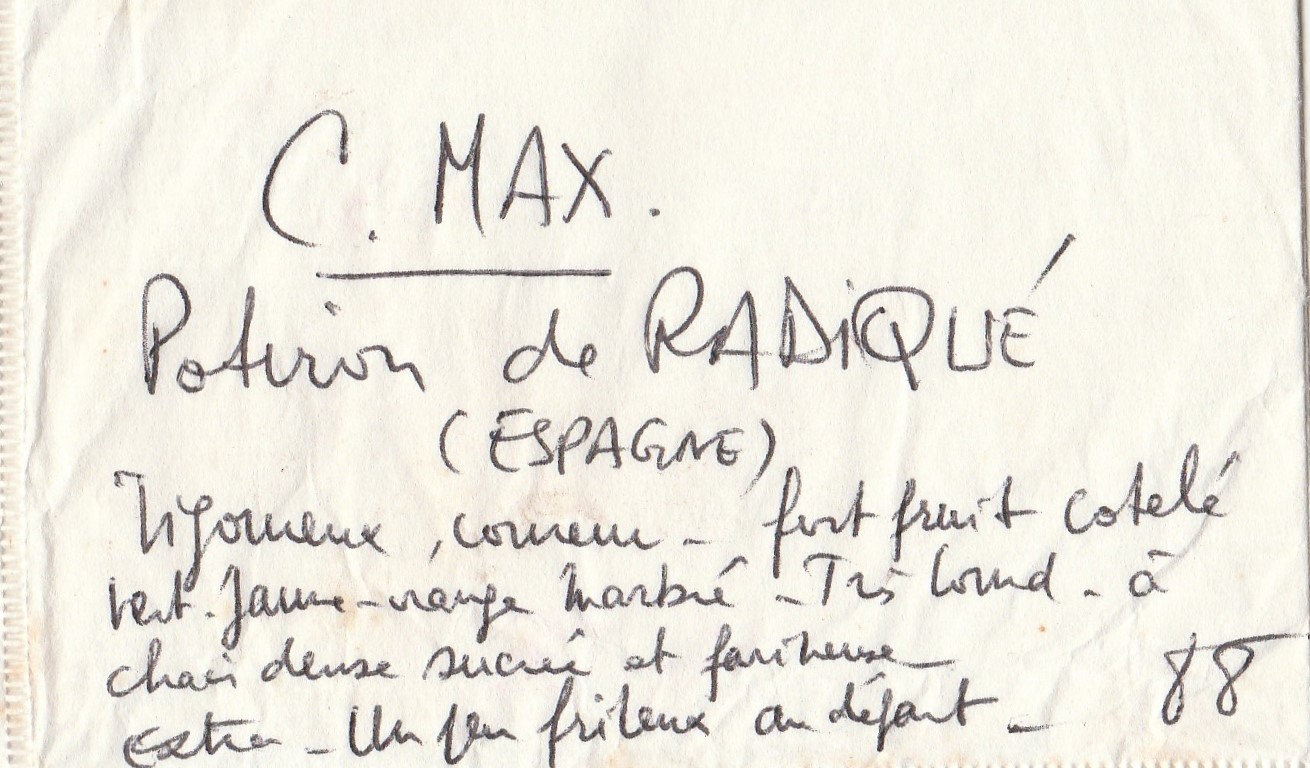 C. MAX.
Potiron de RADiQUÉ
(ESPAGNE)
Vigoureux, coureur - fort fruit cotelé
vert. jaune-orange marbré - Très lourd - à
chair dense sucrée et farineuse
extra - Un peu frileux au départ -
88